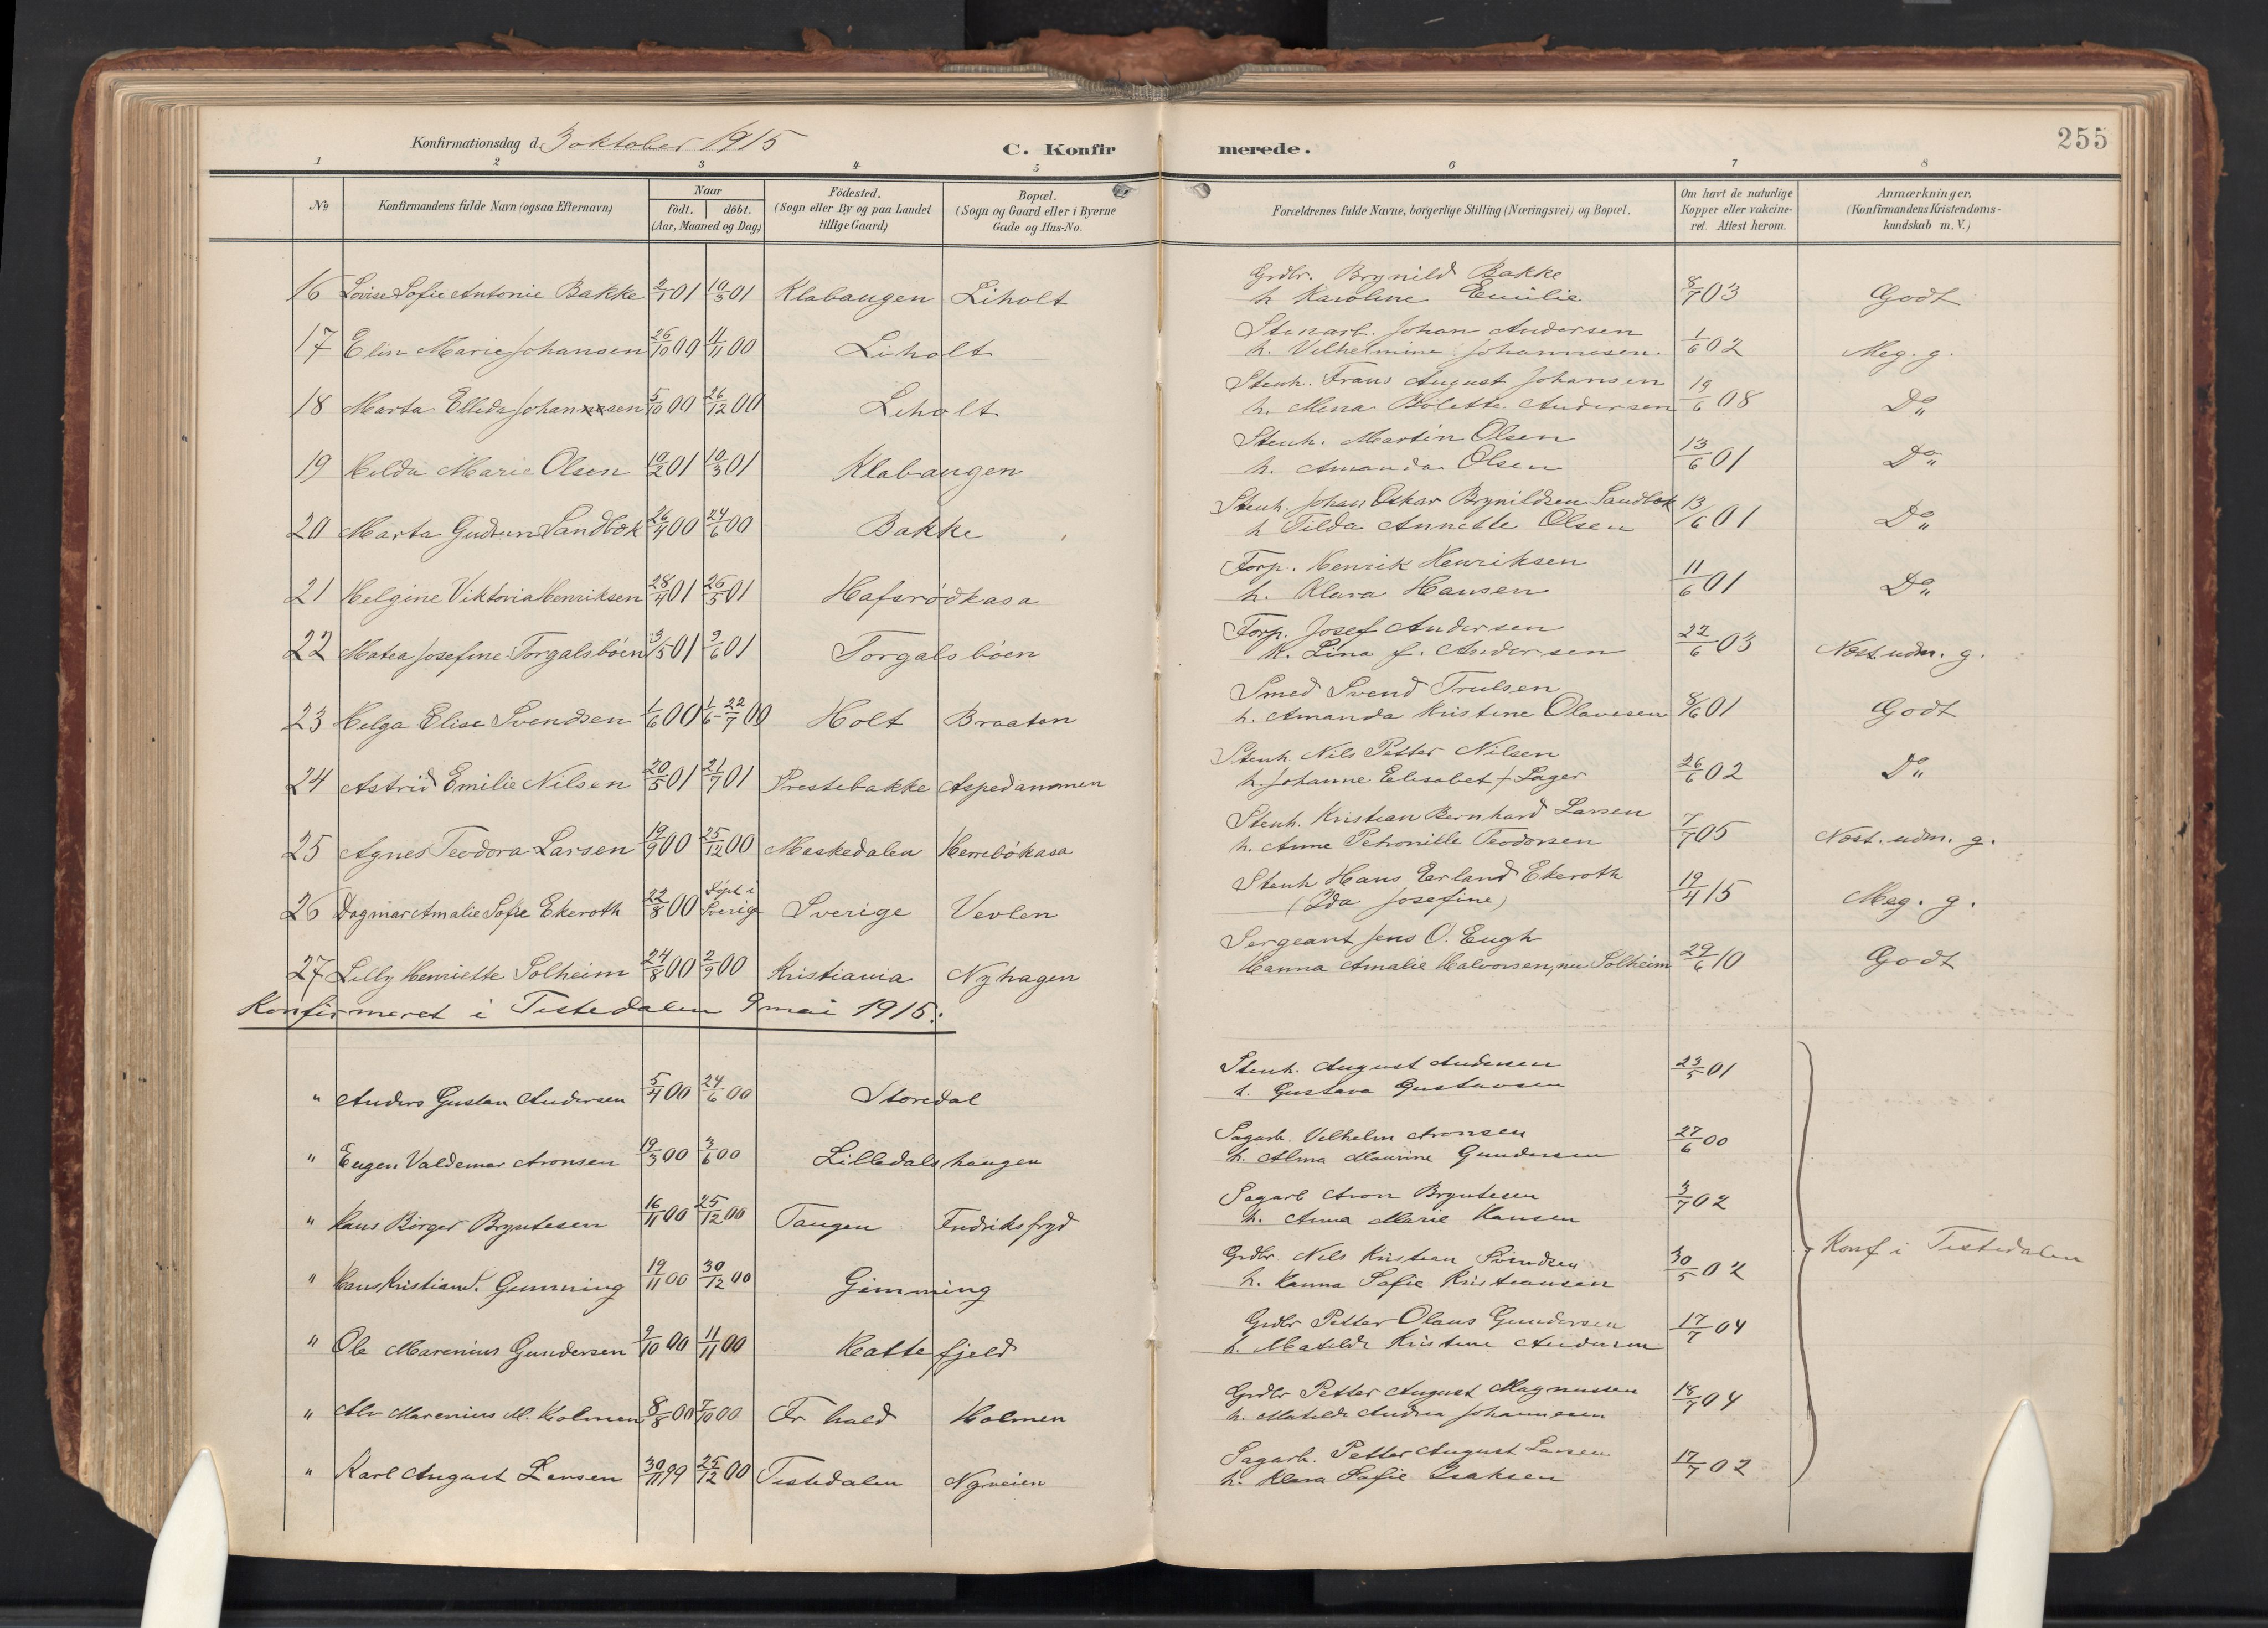 255
Konfirmationsdag d. 3 oktober 1915
C. Konfir merede.
1 2 3 4 5 6 7 8
No
Konfirmandens fulde Navn (ogsaa Efternavn)
Naar
født. | döbt.
(Aar, Maaned og Dag)
Födested.
(Sogn eller By og paa Landet
tillige Gaard)
Bopæl.
(Sogn og Gaard eller i Byerne
Gade og Hus-No.
Forældrenes fulde Navne, borgerlige Stilling (Næringsvei) og Bopæl.
Om havt de naturlige
Kopper eller vakcine-
ret. Attest herom.
Anmærkninger.
(Konfirmandens Kristendoms-
kundskab m. V.)
16 Lovise Sofie Antonie Bakke 2/1 01 10/3 01 Klabaugen Liholt
Grdbr. Brynild Bakke
h Karoline Emilie 8/7 03 Godt
17 Elin Marie Johansen 26/10 00 11/11 00 Liholt
Stenarb. Johan Andersen
h. Vilhelmine Johannesen. 1/6 02 Meg. g.
18 Marta Elleda Johansen 5/10 00 26/12 00 Liholt
Stenh. Frans August Johansen
h. Mena Bolette Andersen 19/6 08 Do "
19 Hilda Marie Olsen 10/2 01 10/3 01 Klabaugen
Stenh. Martin Olsen
h. Amanda Olsen 13/6 01 Do "
20 Marta Gudrun Sandbæk 26/4 00 24/6 00 Bakke
Stenh. Johan Oskar Brynildsen Sandbæk
h Tilda Annette Olsen 13/6 01 Do "
21 Helgine Viktoria Henriksen 28/4 01 26/5 01 Hafsrødkasa
Forp. Henrik Henriksen
h. Klara Hansen 11/6 01 Do "
22 Matea Josefine Torgalsböen 3/5 01 9/6 01 Torgalsböen
Forp. Josef Andersen
h. Lina f. Andersen 22/6 03 Næst. udm. g.
23 Helga Elise Svendsen 1/6 00 1/6 - 22/7 00 Holt Braaten
Smed Svend Trulsen
h. Amanda Kristine Olavesen 8/6 01 Godt
24 Astrid Emilie Nilsen 20/5 01 21/7 01 Prestebakke Aspedammen
Stenh. Nils Petter Nilsen
h. Johanne Elisabet f. Lager 26/6 02 Do "
25 Agnes Teodora Larsen 19/9 00 25/12 00 Meskedalen Herrebökasa
Stenh. Kristian Bernhard Larsen
h. Anne Petronille Teodorsen 7/7 05 Næst. udm. g.
26 Dagmar Amalie Sofie Ekeroth 22/8 00 Døpt i Sverig Sverige Vevlen
Stenh Hans Erland Ekeroth
(Ida Josefine) 19/4 15 Meg. g.
27 Lilly Henriette Solheim 24/8 00 2/9 00 Kristiania Nyhagen
Sergeant Jens O. Engh
Hanna Amalie Halvorsen, nu Solheim 29/6 10 Godt
Konfirmeret i Tistedalen 9 mai 1915:
" Anders Gustav Andersen 5/4 00 24/6 00 Storedal
Stenh. August Andersen
h. Gustava Gustavsen 23/5 01
" Eugen Valdemar Aronsen 19/3 00 3/6 00 Lilledalshaugen
Sagarb. Vilhelm Aronsen
h. Alma Maurine Gundersen 27/6 00
" Hans Börger Bryntesen 16/11 00 25/12 00 Tangen Fredriksfryd
Sagarb Aron Bryntesen
h. Anna Marie Hansen 3/7 02
" Hans Kristian S. Gimming 19/11 00 30/12 00 Gimming
Grdbr. Nils Kristian Svendsen
h. Hanna Sofie Kristiansen 30/5 02
Konf i Tistedalen
" Ole Marenius Gundersen 9/10 00 11/11 00 Kattefjeld
Grdbr Petter Olaus Gundersen
h. Matilde Kristine Andersen 17/7 04
" Alv Marenius M. Holmen 8/8 00 7/10 00 Fr hald Holmen
Grdbr Petter August Magnussen
h. Matilde Andrea Johannesen 18/7 04
" Karl August Larsen 30/11 99 25/12 00 Tistedalen Nyveien
Sagarb. Petter August Larsen
h. Klara Sofie Isaksen 17/7 02